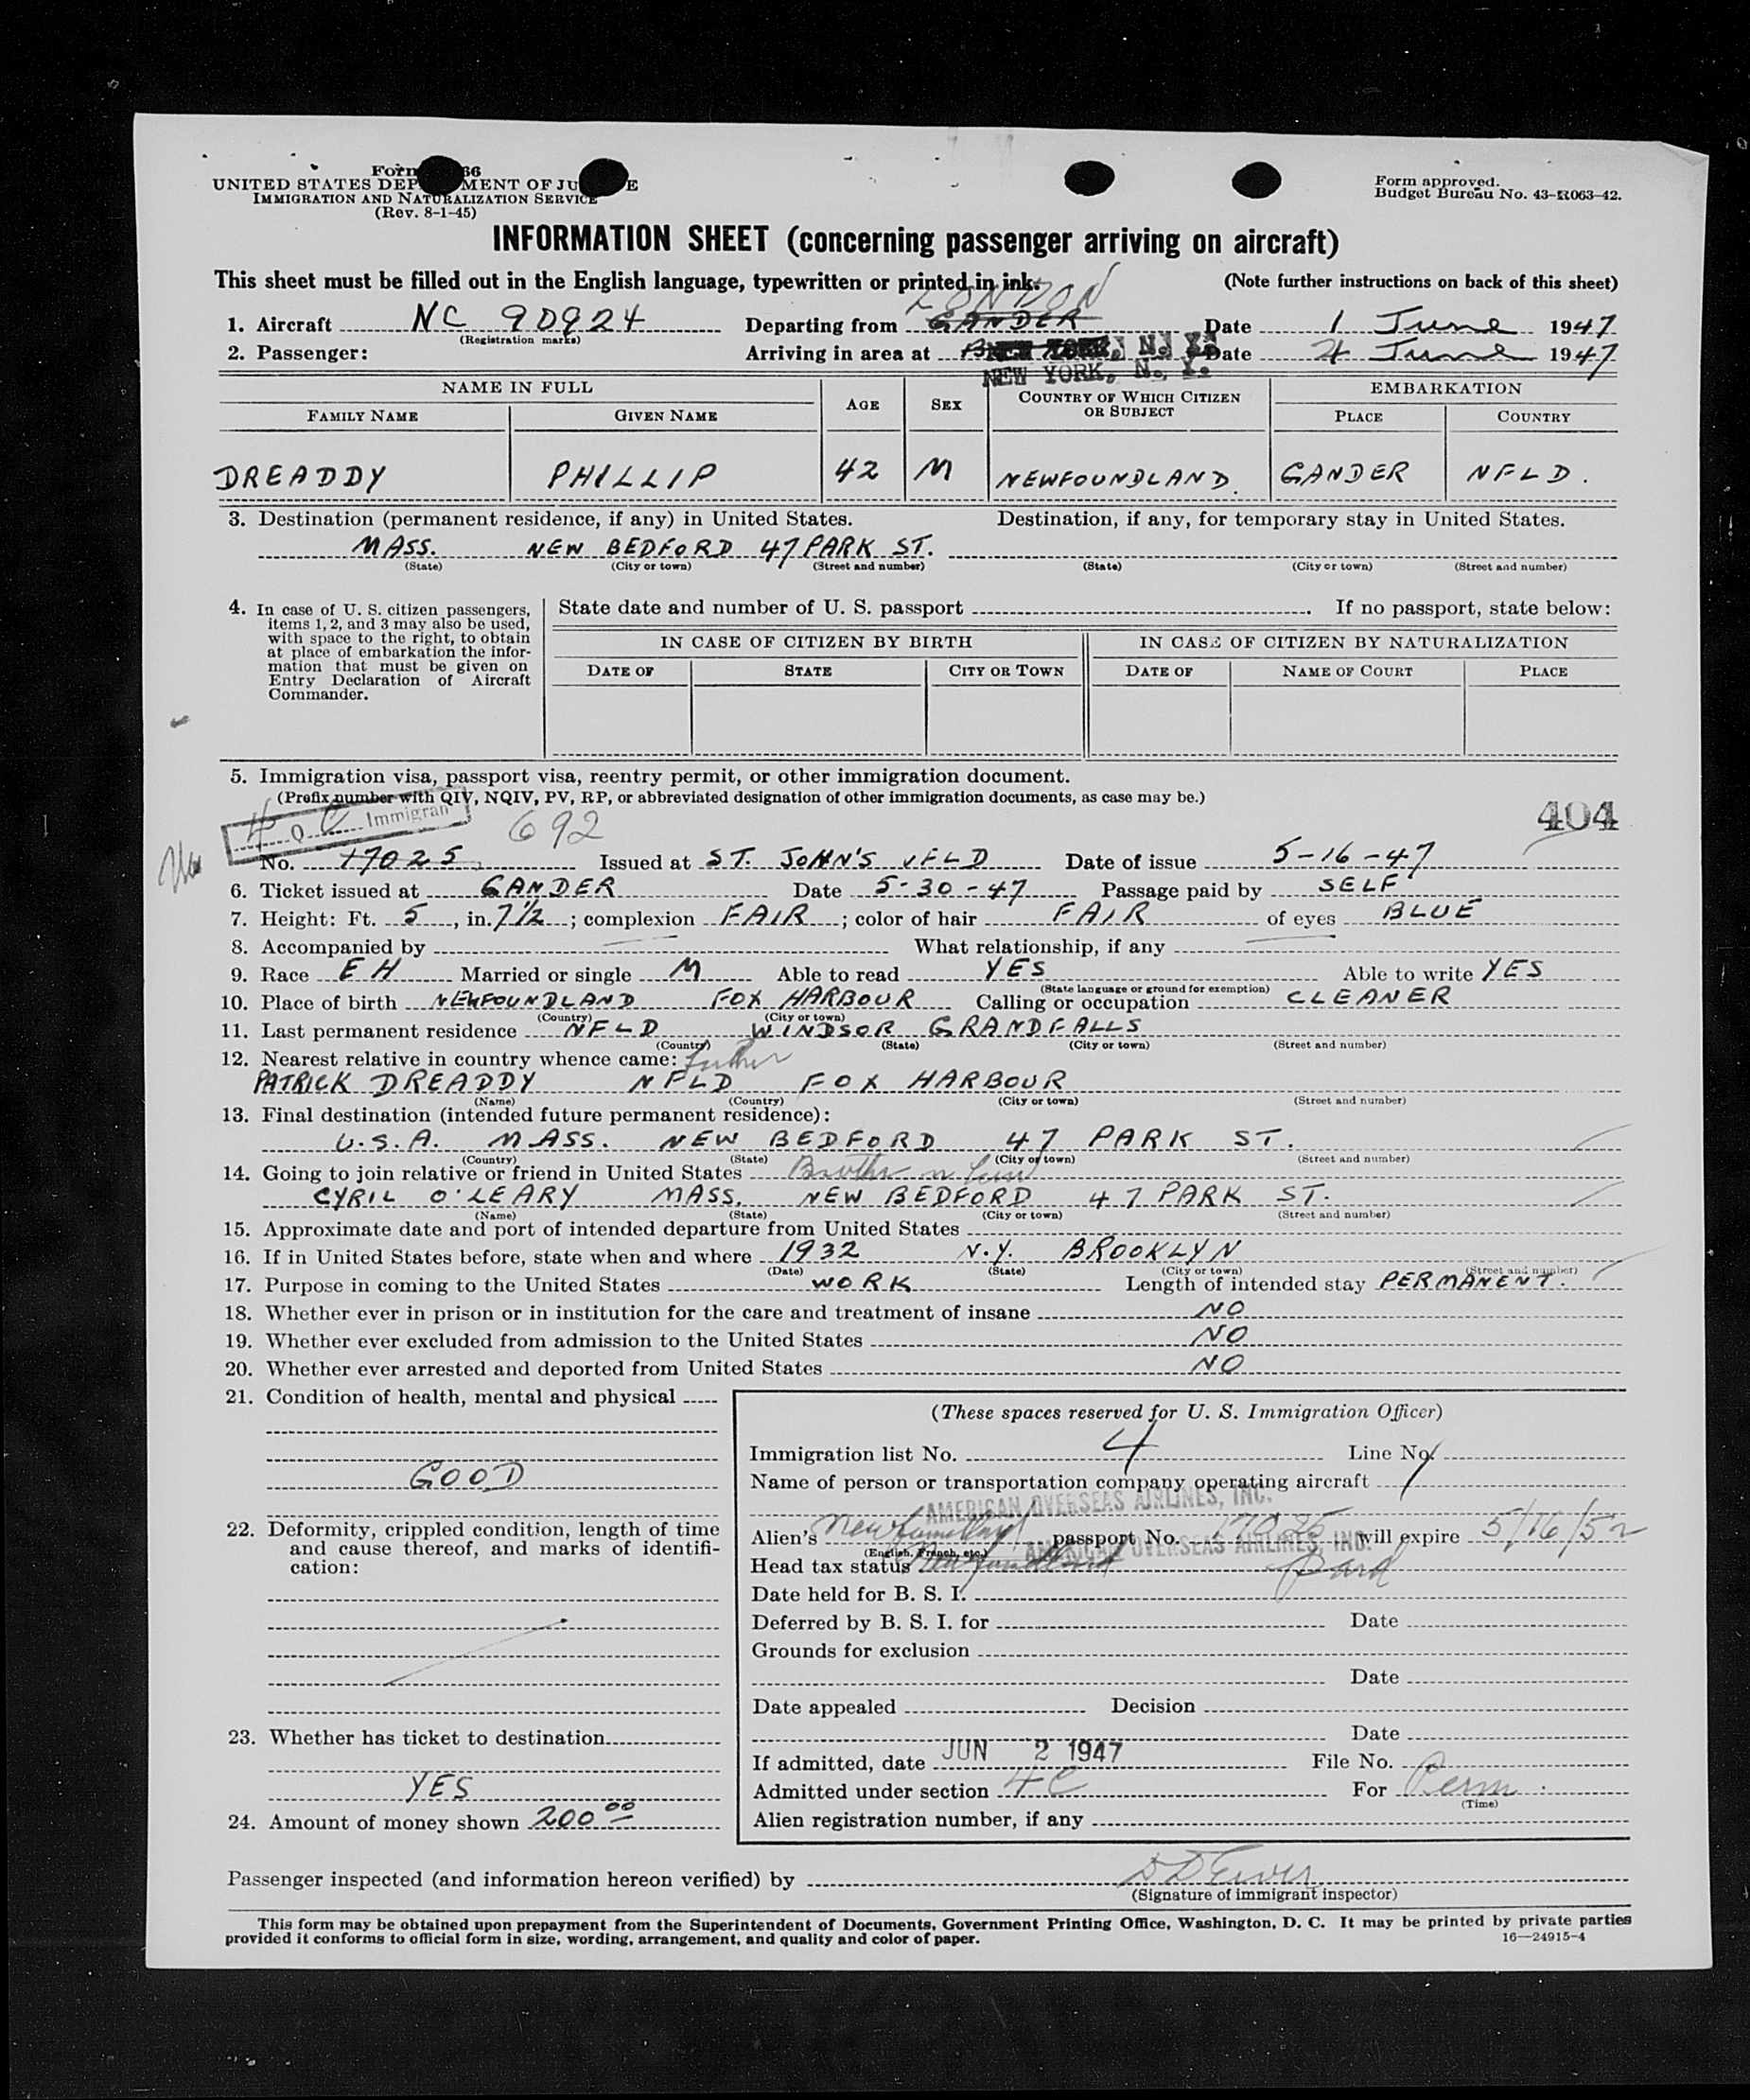 Form 66
UNITED STATES DEP MENT OF JU E
IMMIGRATION AND NATURALIZATION SERVICE
(Rev. 8-1-45)
Form approved.
Budget Bureau No. 43-R063-42.
INFORMATION SHEET (concerning passenger arriving on aircraft)
This sheet must be filled out in the English language, typewritten or printed in ink. (Note further instructions on back of this sheet)
LONDON
1. Aircraft NC 90924 Departing from GANDER Date 1 June 1947
(Registration marks)
2. Passenger: Arriving in area at Date 2 June 1947
NEW YORK, N. Y.
NAME IN FULL AGE SEX COUNTRY OF WHICH CITIZEN OR SUBJECT EMBARKATION
FAMILY NAME GIVEN NAME PLACE COUNTRY
DREADDY PHILLIP 42 M NEWFOUNDLAND. GANDER NFLD.
3. Destination (permanent residence, if any) in United States. Destination, if any, for temporary stay in United States.
MASS. NEW BEDFORD 47 PARK ST.
(State) (City or town) (Street and number) (State) (City or town) (Street and number)
4. In case of U. S. citizen passengers, items 1, 2, and 3 may also be used, with space to the right, to obtain at place of embarkation the information that must be given on Entry Declaration of Aircraft Commander.
State date and number of U. S. passport . If no passport, state below:
IN CASE OF CITIZEN BY BIRTH IN CASE OF CITIZEN BY NATURALIZATION
DATE OF STATE CITY OR TOWN DATE OF NAME OF COURT PLACE
5. Immigration visa, passport visa, reentry permit, or other immigration document.
(Prefix number with QIV, NQIV, PV, RP, or abbreviated designation of other immigration documents, as case may be.)
4 C Immigran
692
404
No. 17025 Issued at ST. JOHN'S NFLD Date of issue 5-16-47
6. Ticket issued at GANDER Date 5-30-47 Passage paid by SELF
7. Height: Ft. 5, in. 7 1/2; complexion FAIR; color of hair FAIR of eyes BLUE
8. Accompanied by What relationship, if any
9. Race EH Married or single M Able to read YES Able to write YES
(State language or ground for exemption)
10. Place of birth NEWFOUNDLAND FOX HARBOUR Calling or occupation CLEANER
(Country) (City or town)
11. Last permanent residence NFLD WINDSOR GRANDFALLS
(Country) (State) (City or town) (Street and number)
12. Nearest relative in country whence came: father
PATRICK DREADDY NFLD FOX HARBOUR
(Name) (Country) (City or town) (Street and number)
13. Final destination (intended future permanent residence):
U.S.A. MASS. NEW BEDFORD 47 PARK ST.
(Country) (State) (City or town) (Street and number)
14. Going to join relative or friend in United States Brother in law
CYRIL O'LEARY MASS. NEW BEDFORD 47 PARK ST.
(Name) (State) (City or town) (Street and number)
15. Approximate date and port of intended departure from United States
16. If in United States before, state when and where 1932 N.Y. BROOKLYN
(Date) (State) (City or town) (Street and number)
17. Purpose in coming to the United States WORK Length of intended stay PERMANENT.
18. Whether ever in prison or in institution for the care and treatment of insane NO
19. Whether ever excluded from admission to the United States NO
20. Whether ever arrested and deported from United States NO
21. Condition of health, mental and physical
GOOD
22. Deformity, crippled condition, length of time and cause thereof, and marks of identification:
23. Whether has ticket to destination
YES
24. Amount of money shown 200.00
(These spaces reserved for U. S. Immigration Officer)
Immigration list No. 4 Line No. 1
Name of person or transportation company operating aircraft
AMERICAN OVERSEAS AIRLINES, INC.
Alien's Newfoundland passport No. 17025 will expire 5/16/52
(English, French, etc.) AMERICAN OVERSEAS AIRLINES, INC.
Head tax status Newfoundland Paid
Date held for B. S. I.
Deferred by B. S. I. for Date
Grounds for exclusion
Date
Date appealed Decision
Date
If admitted, date JUN 2 1947 File No.
Admitted under section 4C For Perm.
(Time)
Alien registration number, if any
Passenger inspected (and information hereon verified) by
(Signature of immigrant inspector)
This form may be obtained upon prepayment from the Superintendent of Documents, Government Printing Office, Washington, D. C. It may be printed by private parties
provided it conforms to official form in size, wording, arrangement, and quality and color of paper. 16—24915-4